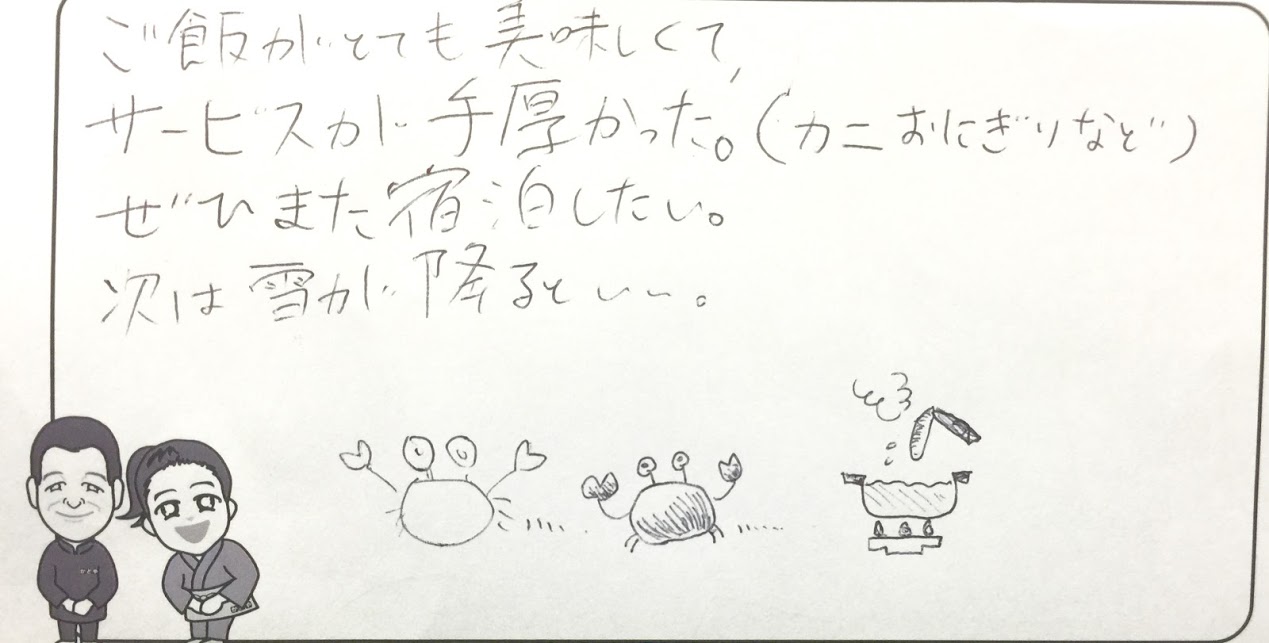 ご飯がとても美味しくて、
サービスが手厚かった。(カニおにぎりなど)
ぜひまた宿泊したい。
次は雪が降るといいー。